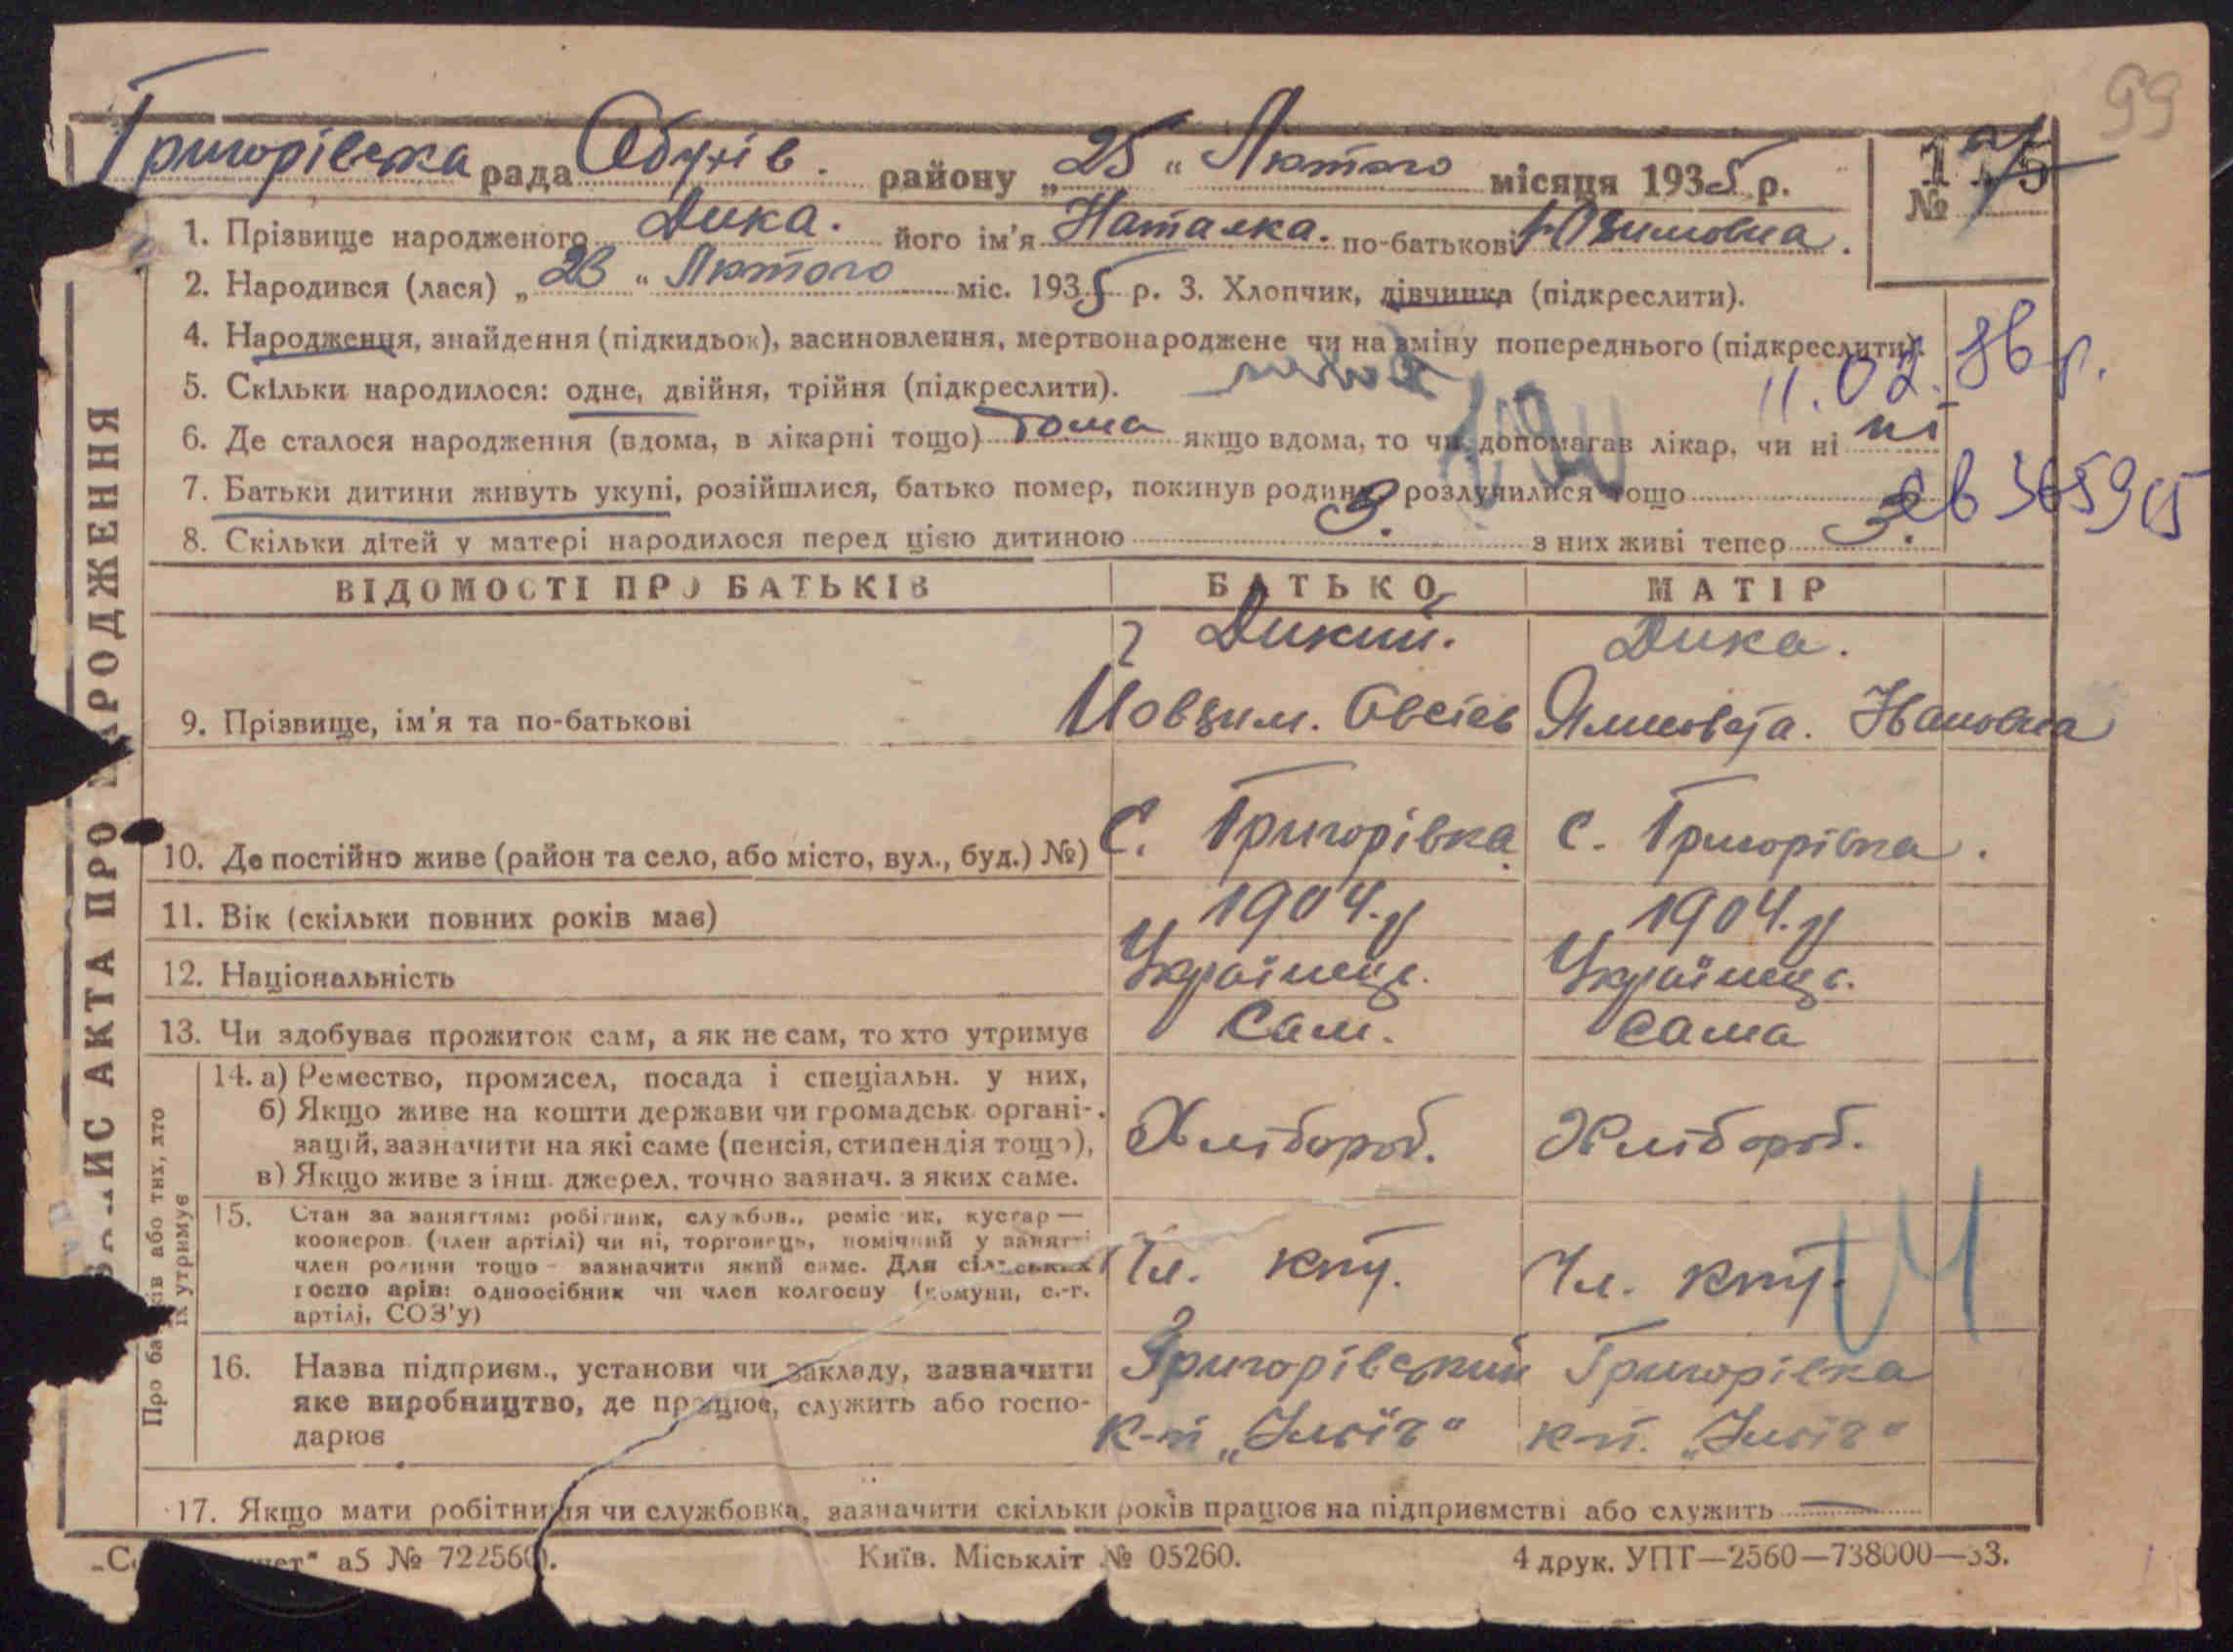 99
Григорівська рада Обухів. району „25“ Лютого місяця 1935 р.
№
1. Прізвище народженого Дика. його ім'я Наталка. по-батькові
2. Народився (лася) „23“ Лютого міс. 1935 р. 3. Хлопчик, дівчинка (підкреслити).
4. Народження, знайдення (підкидьок), засиновлення, мертвонароджене чи на зміну попереднього (підкреслити).
11.02.86 р.
5. Скільки народилося: одне, двійня, трійня (підкреслити).
6. Де сталося народження (вдома, в лікарні тощо) дома якщо вдома, то чи допомагав лікар, чи ні ні
7. Батьки дитини живуть укупі, розійшлися, батько помер, покинув родину, розлучилися тощо
8. Скільки дітей у матері народилося перед цією дитиною 3. з них живі тепер 3.
ЗАПИС АКТА ПРО НАРОДЖЕННЯ
ВІДОМОСТІ ПРО БАТЬКІВ БАТЬКО МАТІР
Дикий. Дика.
9. Прізвище, ім'я та по-батькові Овсієв Івановна
10. Де постійно живе (район та село, або місто, вул., буд.) №) С. Григорівка С. Григорівка.
11. Вік (скільки повних років має) 1904.р 1904.р
12. Національність Українець. Українець.
13. Чи здобував прожиток сам, а як не сам, то хто утримує Сам. Сама
Про батьків або тих, хто їх утримує
14. а) Ремество, промисел, посада і спеціальн. у них,
б) Якщо живе на кошти держави чи громадськ. органі-
зацій, зазначити на які саме (пенсія, стипендія тощо),
в) Якщо живе з інш. джерел, точно зазнач. з яких саме.
Хлібороб. Хлібороб.
15. Стан за заняттям: робітник, службов., реміс ик, кустар —
кооперов. (член артілі) чи ні, торговець, помічний у занятті
член родини тощо — зазначити який саме. Для сільських
госпо арів: одноосібник чи член колгоспу (комуни, с.-г.
артілі, СОЗ'у)
Чл. кту. Чл. кту.
16. Назва підприєм., установи чи закладу, зазначити
яке виробництво, де працює, служить або госпо-
дарює
Григорівський Григорівка
к-п „Ілліч“ к-п. „Ілліч“
17. Якщо мати робітниця чи службовка, зазначити скільки років працює на підприємстві або служить —
а5 № 722560. Київ. Міськліт № 05260. 4 друк. УПТ—2560—738000—33.